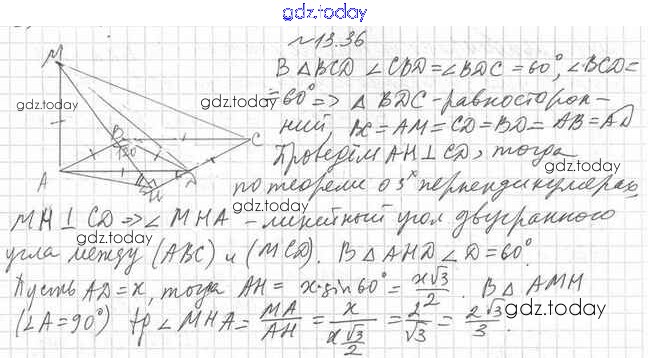 gdz.today
№13.36
В △BCD ∠CBD=∠BDC=60°, ∠BCD=
=60° => △ BDC-равносторон-
ний, BC=AM=CD=BD=AB=AD
Проведём AH⊥CD, тогда
по теореме о 3х перпендикулярах,
MH⊥CD => ∠MHA - линейный угол двугранного
угла между (ABC) и (MCD). В △AHD ∠D=60°.
Пусть AD=x, тогда AH = x·sin60° = x√3/2. В △AMH
(∠A=90°) tg∠MHA = MA/AH = x/(x√3/2) = 2/√3 = 2√3/3.
M
B
C
120
A
D
H
gdz.today
gdz.today
gdz.today
gdz.today
gdz.today
gdz.today
gdz.today